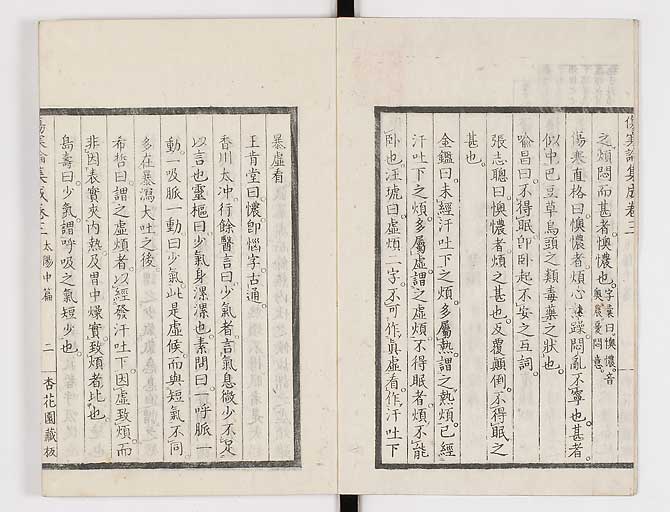 傷寒論集成卷三
之煩悶而甚者懊憹也。字彙曰懊憹。音奧農憂悶意。
傷寒直格曰懊憹者煩心熱躁悶亂不寧也甚者
似中巴豆草烏頭之類毒藥之狀也。
喻昌曰不得眠卽臥起不安之互詞。
張志聰曰懊憹者煩之甚也。反覆顛倒。不得眠之
甚也。
金鑑曰。未經汗吐下之煩。多屬熱。謂之熱煩。已經
汗吐下之煩。多屬虛。謂之虛煩。不得眠者煩不能
臥也。汪琥曰虛煩二字。不可作眞虛看。作汗吐下
暴虛看
王肯堂曰憹卽惱字古通。
香川太冲。行餘醫言曰少氣者。言氣息微少不足
以言也靈樞曰少氣身漯漯也。素問曰一呼脈一
動一吸脈一動曰少氣。此是虛候。而與短氣不同
多在暴瀉大吐之後。
希哲曰。謂之虛煩者。以經發汗吐下。因虛致煩。而
非因表實夾內熱。及胃中燥實。致煩者比也。
島壽曰。少氣。謂呼吸之氣短少也。
傷寒論集成卷三 太陽中篇 二 杏花園藏板